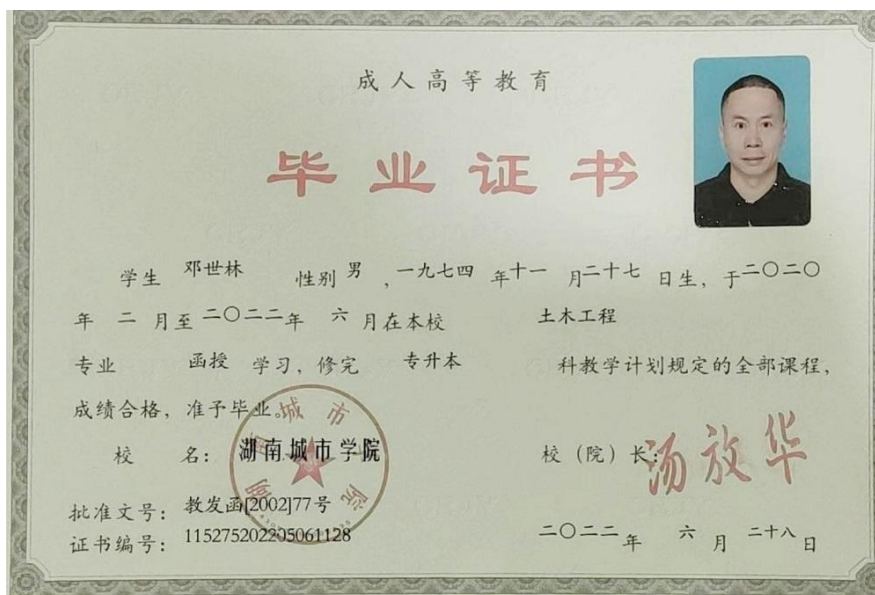 成人高等教育
毕业证书
学生 邓世林 性别 男 ,一九七四 年十一 月二十七 日生，于二〇二〇
年 二 月至 二〇二二年 六 月在本校 土木工程
专业 函授 学习，修完 专升本 科教学计划规定的全部课程，
成绩合格，准予毕业。
校 名： 湖南城市学院 校（院）长： 汤放华
批准文号： 教发函[2002]77号
证书编号： 115275202205061128 二〇二二 年 六 月 二十八 日
湖南城市学院